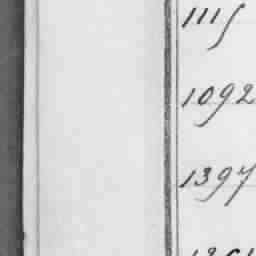 1115
1092
1397